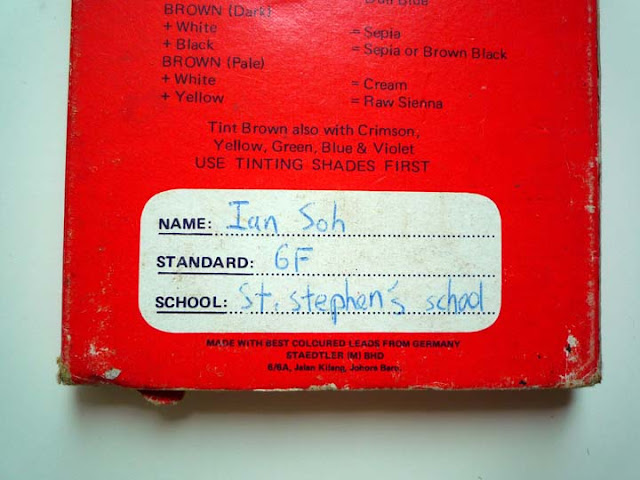 BROWN (Dark)
= Dull Blue
+ White = Sepia
+ Black = Sepia or Brown Black
BROWN (Pale)
+ White = Cream
+ Yellow = Raw Sienna
Tint Brown also with Crimson,
Yellow, Green, Blue & Violet
USE TINTING SHADES FIRST
NAME: Ian Soh
STANDARD: 6F
SCHOOL: St. stephen's school
MADE WITH BEST COLOURED LEADS FROM GERMANY
STAEDTLER (M) BHD
6/6A, Jalan Kilang, Johore Baru.